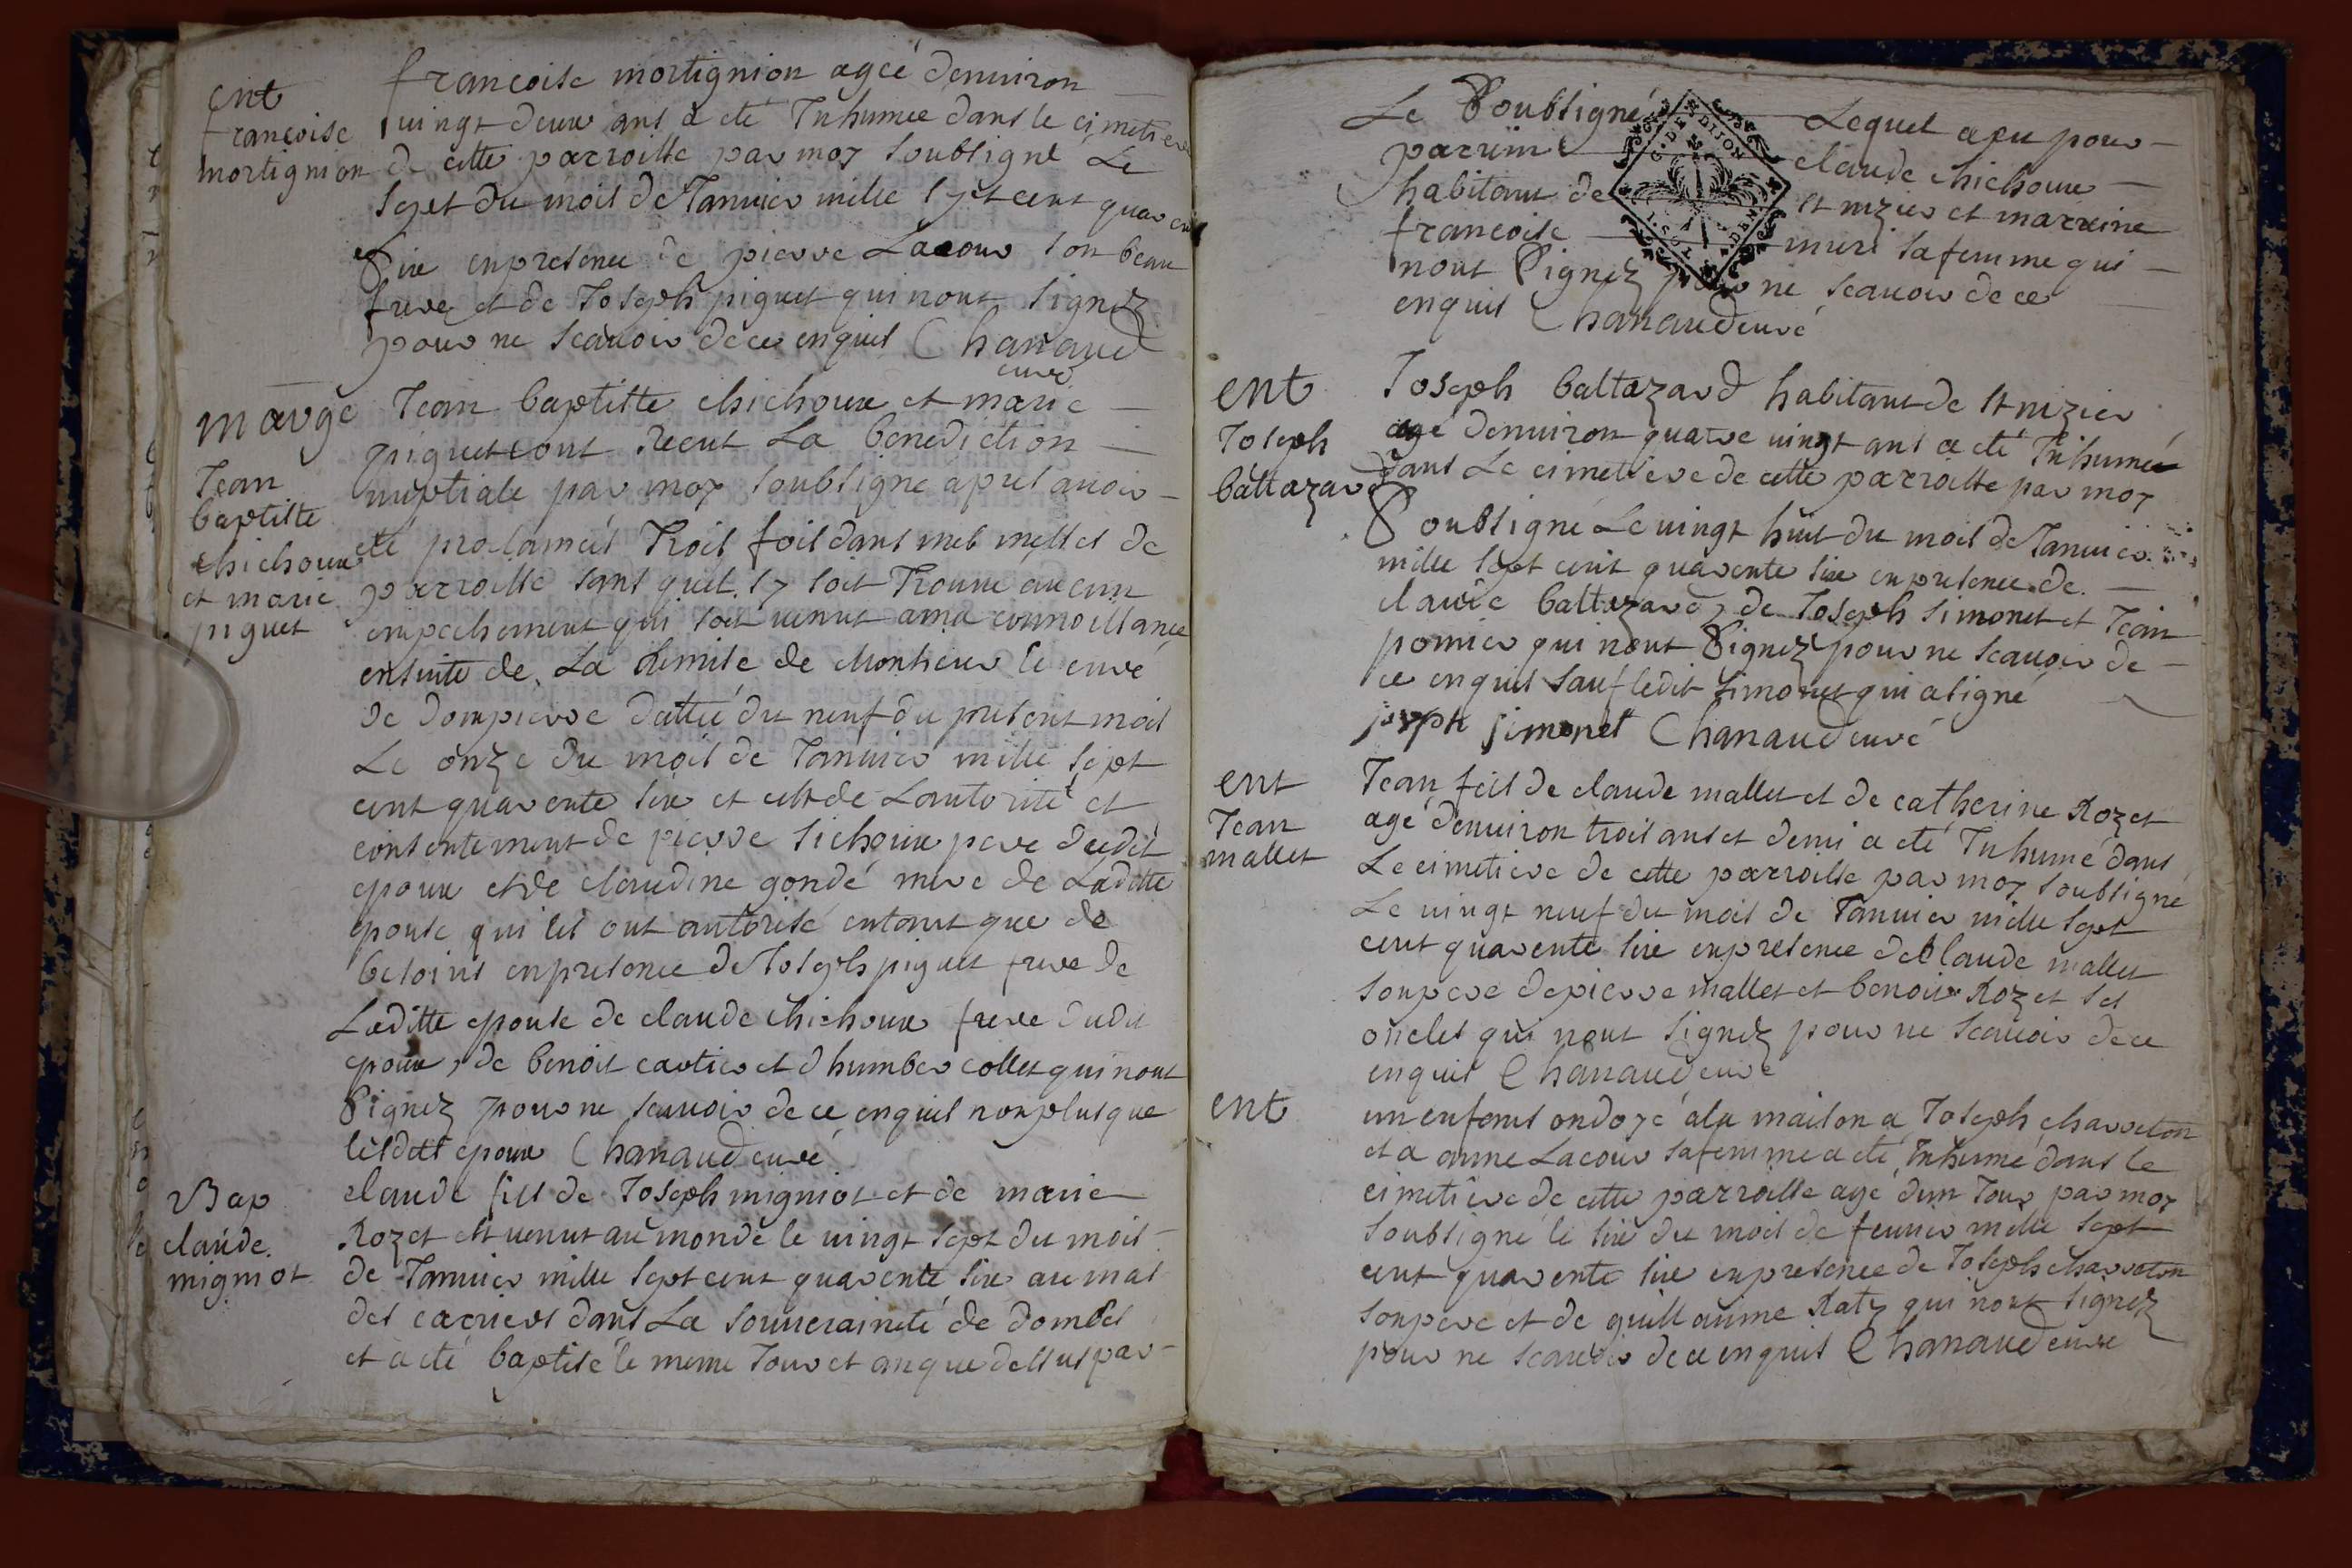 ent
francoise
mortignion
francoise mortignion ageé denuiron
uingt deux ans a eté Inhumeé dans le cimetiere
de cette parroisse par moy soubsigné Le
sept du mois de Januier mille sept cent quarente
Six en presence de pierre Lacour son beau
frere et de Joseph piguet qui nont signez
pour ne scauoir de ce enquis Chanaud
curé
marge
Jean
baptiste
chichoux
et marie
piguet
Jean baptiste chichoux et marie
piguet ont Receut La benediction
nuptiale par moy soubsigné apres auoir
eté proclameés Trois fois dans mes messes de
parroisse sans quil sy soit Trouué aucun
empechement qui soit uenut a ma connoissance
ensuite de La Remise de Monsieur le curé
de dompierre datteé du neuf du present mois
Le onze du mois de Januier mille sept
cent quarente six et cest de Lautorité et
consentement de pierre sichoux pere dudit
epoux et de claudine gondé mere de Laditte
epouse qui les ont autorisé entant que de
besoins en presence de Joseph piguet frere de
Laditte epouse de claude chichoux frere dudit
epoux, de benoit cartier et d humber collet qui nont
Signez pour ne scauoir de ce enquis non plus que
lesdits epoux Chanaud curé
Bap
claude
migniot
claude fils de Joseph migniot et de marie
Rozet est uenut au monde le uingt sept du mois
de Januier mille sept cent quarente six au mas
des carriers dans La souueraineté de dombes
et a eté baptisé le meme Jour et an que dessus par
Le Soubsigné Lequel a eu pour
parrin claude chichoux
habitant de st nizier et marreine
francoise muri sa femme qui
nont Signez pour ne scauoir de ce
enquis Chanaud curé
G. DE DIJON
ent
Joseph
baltazard
Joseph baltazard habitant de st nizier
agé denuiron quatre uingt ans a eté Inhumé
dans Le cimetiere de cette parroisse par moy
Soubsigné Le uingt huit du mois de Januier
mille sept cent quarente six en presence de
claude baltazard, de Joseph simonet et Jean
pomier qui nont Signez pour ne scauoir de
ce enquis sauf ledit simonet qui a signé
joseph simonet Chanaud curé
ent
Jean
mallet
Jean fils de claude mallet et de catherine Rozet
agé denuiron trois ans et demi a eté Inhumé dans
Le cimetiere de cette parroisse par moy soubsigné
Le uingt neuf du mois de Januier mille sept
cent quarente six en presence de Claude mallet
son pere de pierre mallet et benoit Rozet ses
oncles qui nont signez pour ne scauoir de ce
enquis Chanaud curé
ent
un enfant ondoyé a la maison a Joseph charreton
et a anne Lacour sa femme a eté Inhumé dans le
cimetiere de cette parroisse agé dun Jour par moy
soubsigné le six du mois de feurier mille sept
cent quarente six en presence de Joseph charreton
son pere et de guillaume Raty qui nont signez
pour ne scauoir de ce enquis Chanaud curé